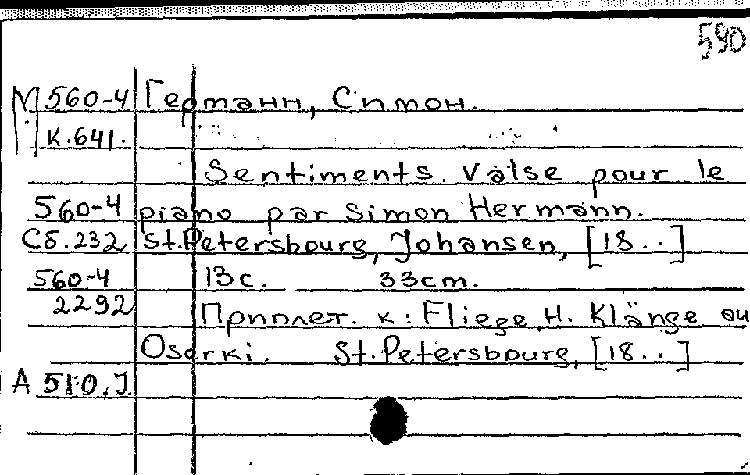 590
М 560-4 Германн, Симон.
К.641.
Sentiments. Valse pour le
560-4 piano par Simon Hermann.
Сб.232 St.Petersbourg, Johansen, [18..]
560-4 13с. 33cm.
2292 Приплет. к: Fliege, H. Klänge au
Oserki. St.Petersbourg, [18..]
А 510.J